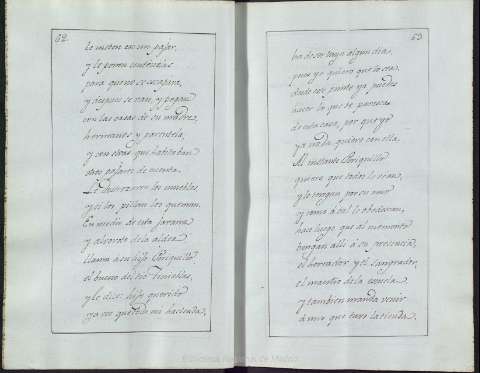 62
le meten en un pajar,
y le ponen centinelas
para que no se escapara,
y despues se van, y pegan
con las casas de su madre,
hermanos y parentela,
y con otras que habitaban
otros pajares de cuenta.
los muebles,
y si los pillan los queman.
En medio de esta jarana
y alboroto de la aldea
llama a su hijo Periquillo
el bueno del tio Tinieblas,
y le dice: hijo querido
ya ves que toda mi hacienda,
63
ha de ser tuya algun dia,
pues yo quiero que lo sea
desde este punto ya puedes
hacer lo que te parezca
de esta casa, por que yo
ya nada quiero con ella.
Al instante Periquillo
quiere que todos lo sean,
y le tengan por su amo
y como á tal le obedezcan,
hace luego que al momento
bengan alli á su presencia,
el herrador y el sangrador,
el maestro de la escuela
y tambien manda venir
á uno que tuvo la tienda,
Biblioteca Regional de Madrid